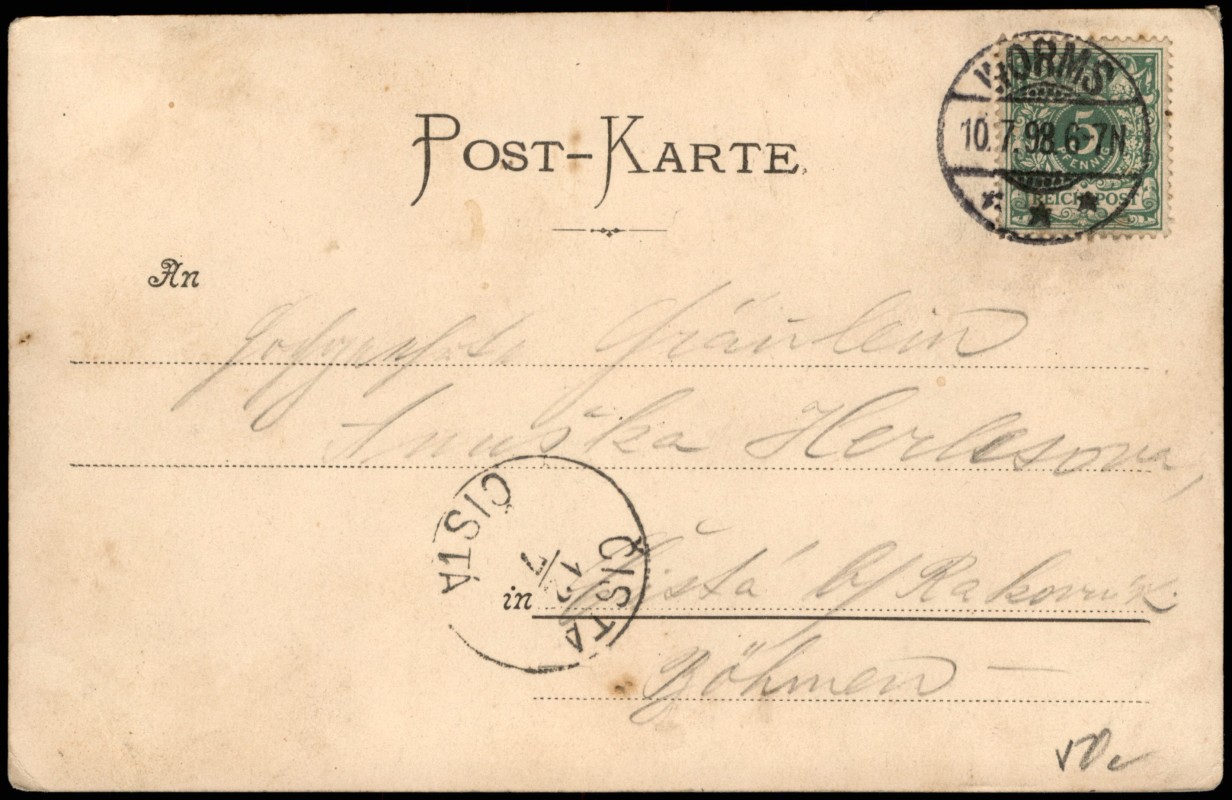 POST-KARTE
WORMS
10.7.98.6-7N
5
PFENNIG
REICHSPOST
An
Fräulein
Anuška Herlesova,
ČISTÁ
12/7
ČISTÁ
in Čistá b/ Rakovník
Böhmen —